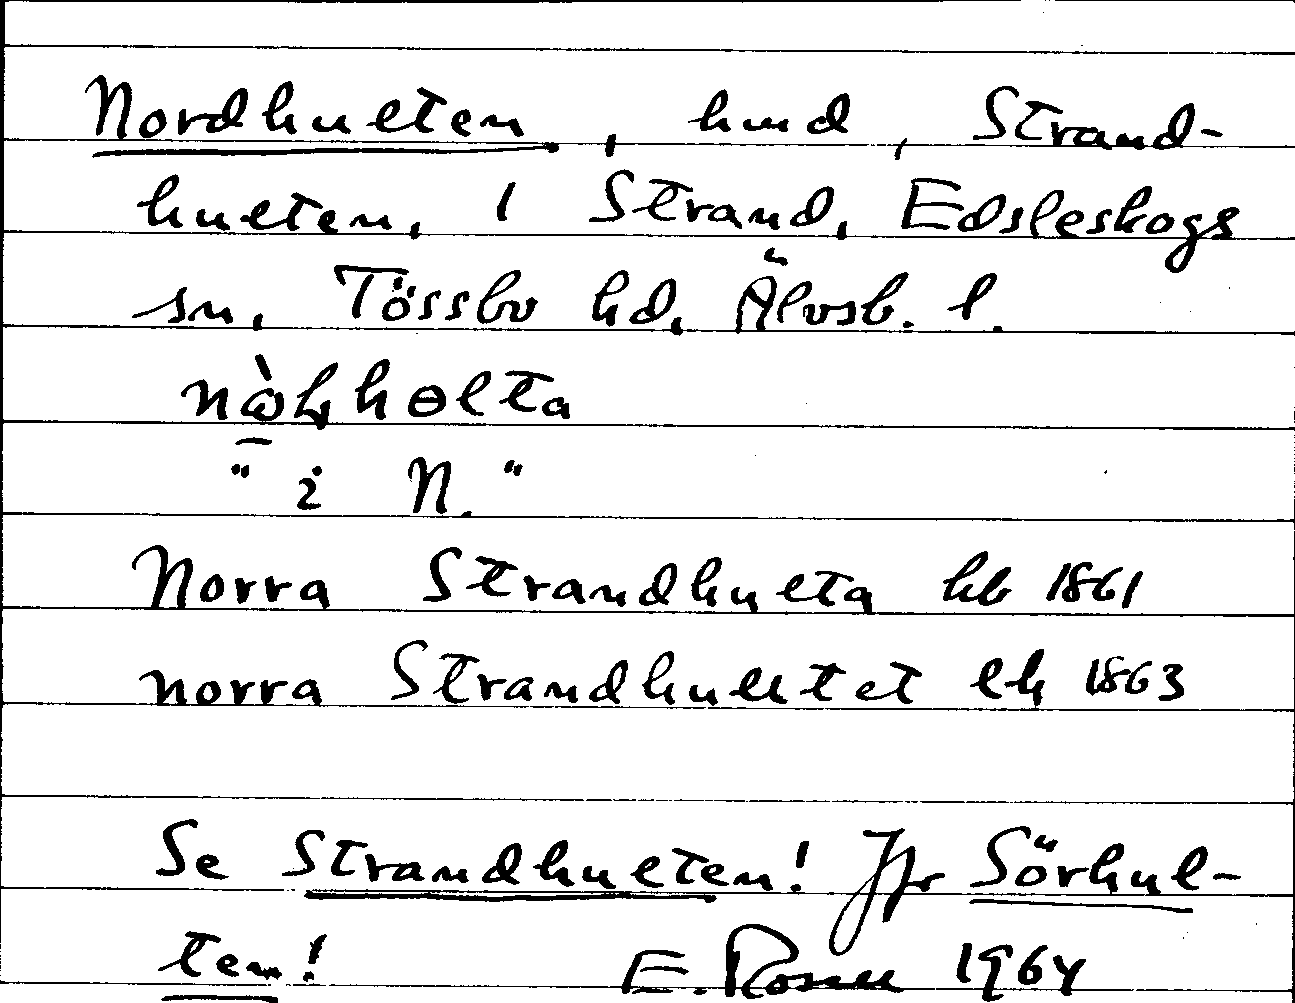 Nordhulten, hmd, Strand-
hulten, 1 Strand, Edsleskogs
sn, Tössbo hd, Älvsb. l.
hɵlta
" i N. "
Norra Strandhulta hb 1861
norra Strandhulltet ek 1863
Se Strandhulten! Jfr Sörhul-
ten! E. Rosell 1964